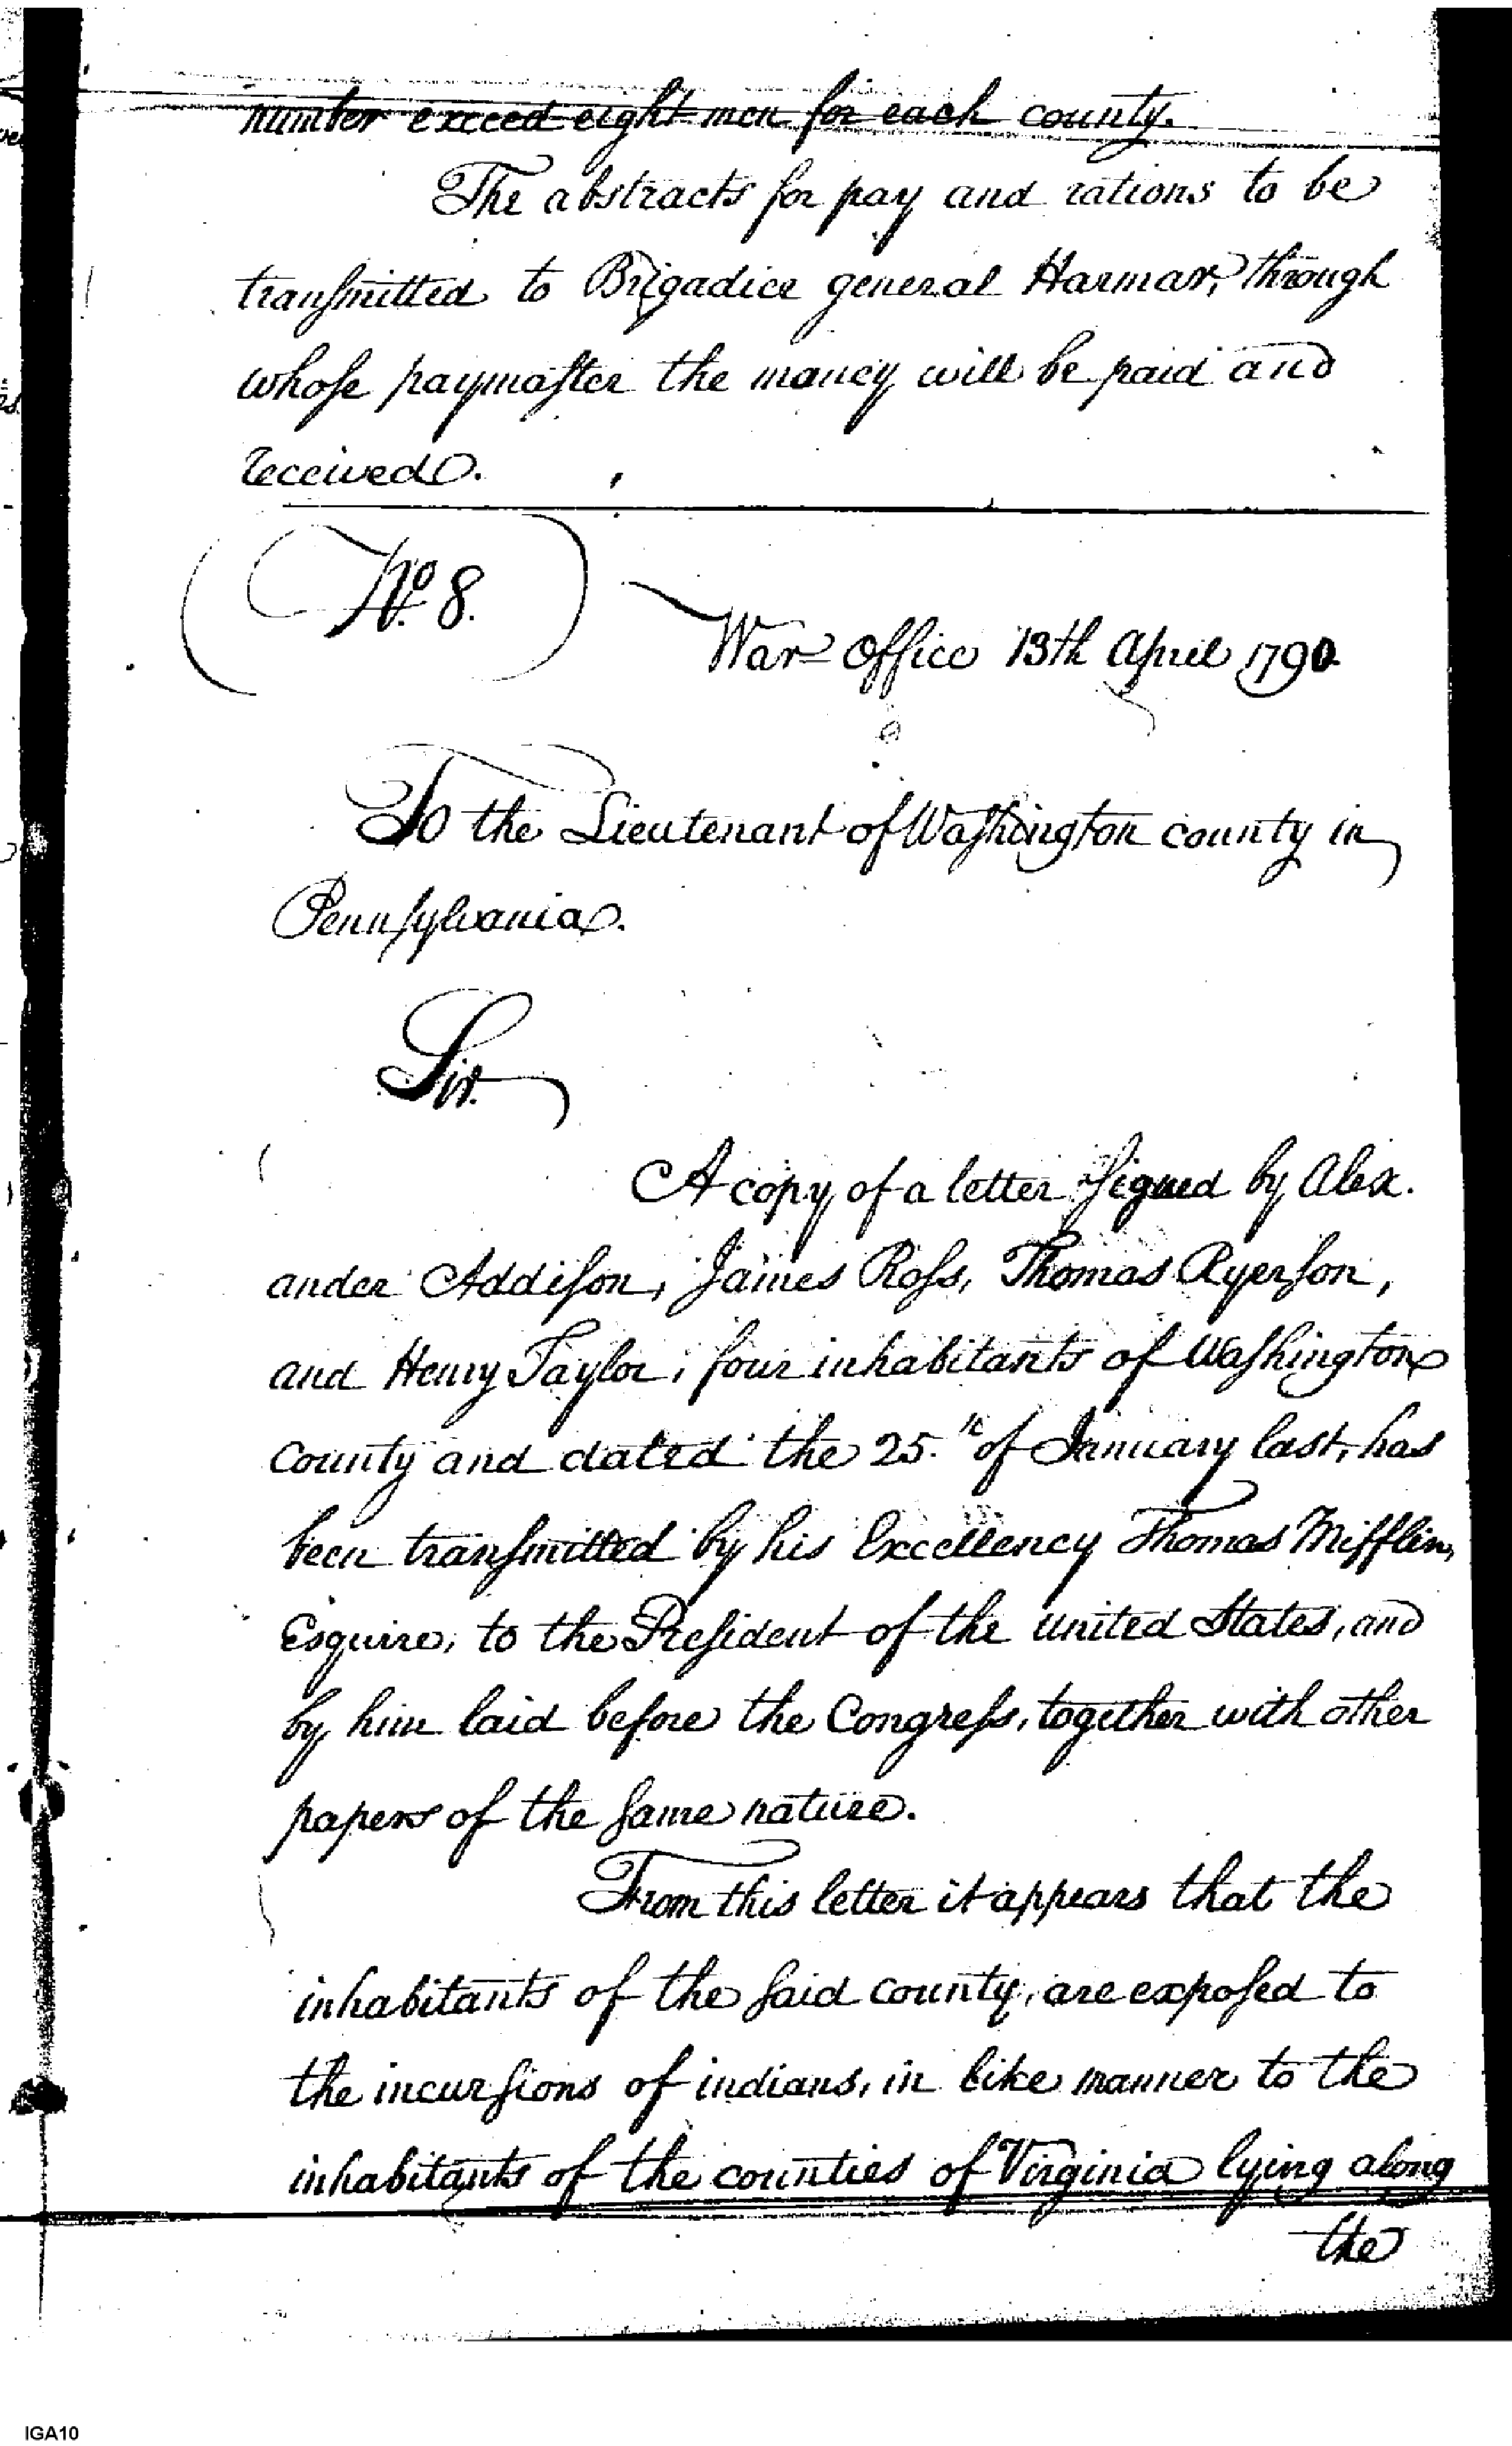 number exceed eight men for each county.
The abstracts for pay and rations to be
transmitted to Brigadier general Harmar, through
whose paymaster the money will be paid and
received.
No. 8.
War Office 13th April 1790.
To the Lieutenant of Washington county in
Pennsylvania.
Sir.
A copy of a letter signed by Alex.
ander Addison, James Ross, Thomas Ryerson,
and Henry Taylor, four inhabitants of Washington
County and dated the 25.th of January last, has
been transmitted by his Excellency Thomas Mifflin,
Esquire, to the President of the united States, and
by him laid before the Congress, together with other
papers of the same nature.
From this letter it appears that the
inhabitants of the said county, are exposed to
the incursions of indians, in like manner to the
inhabitants of the counties of Virginia lying along
the
IGA10